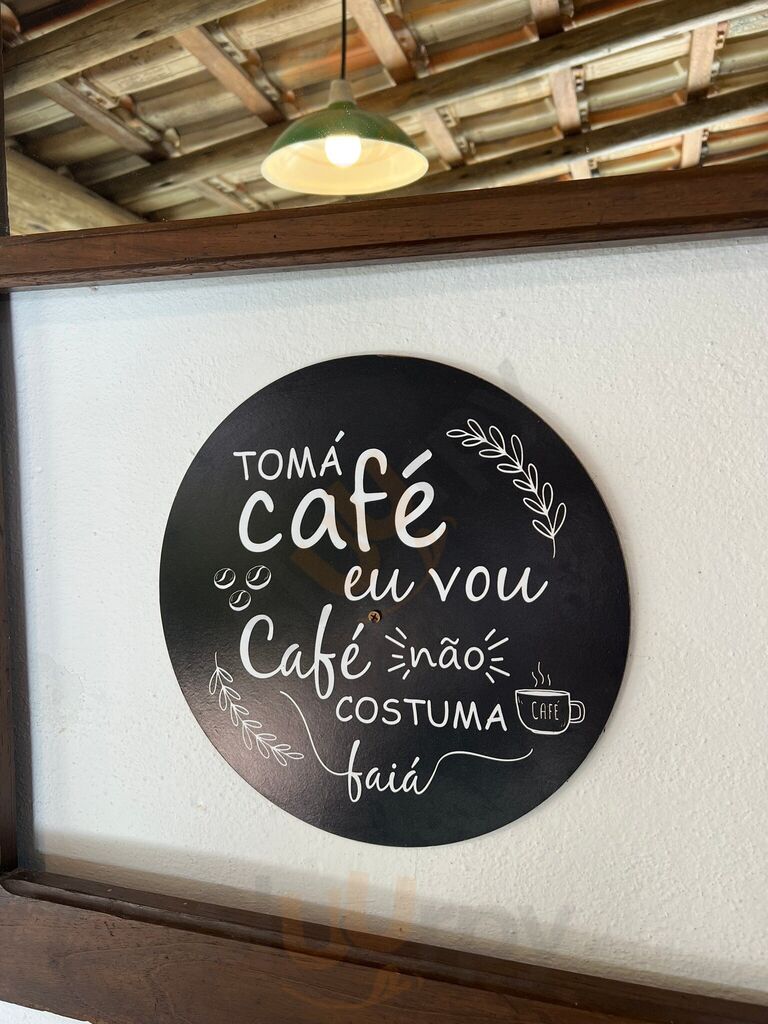 TOMÁ
café
eu vou
Café não
COSTUMA
CAFÉ
faiá